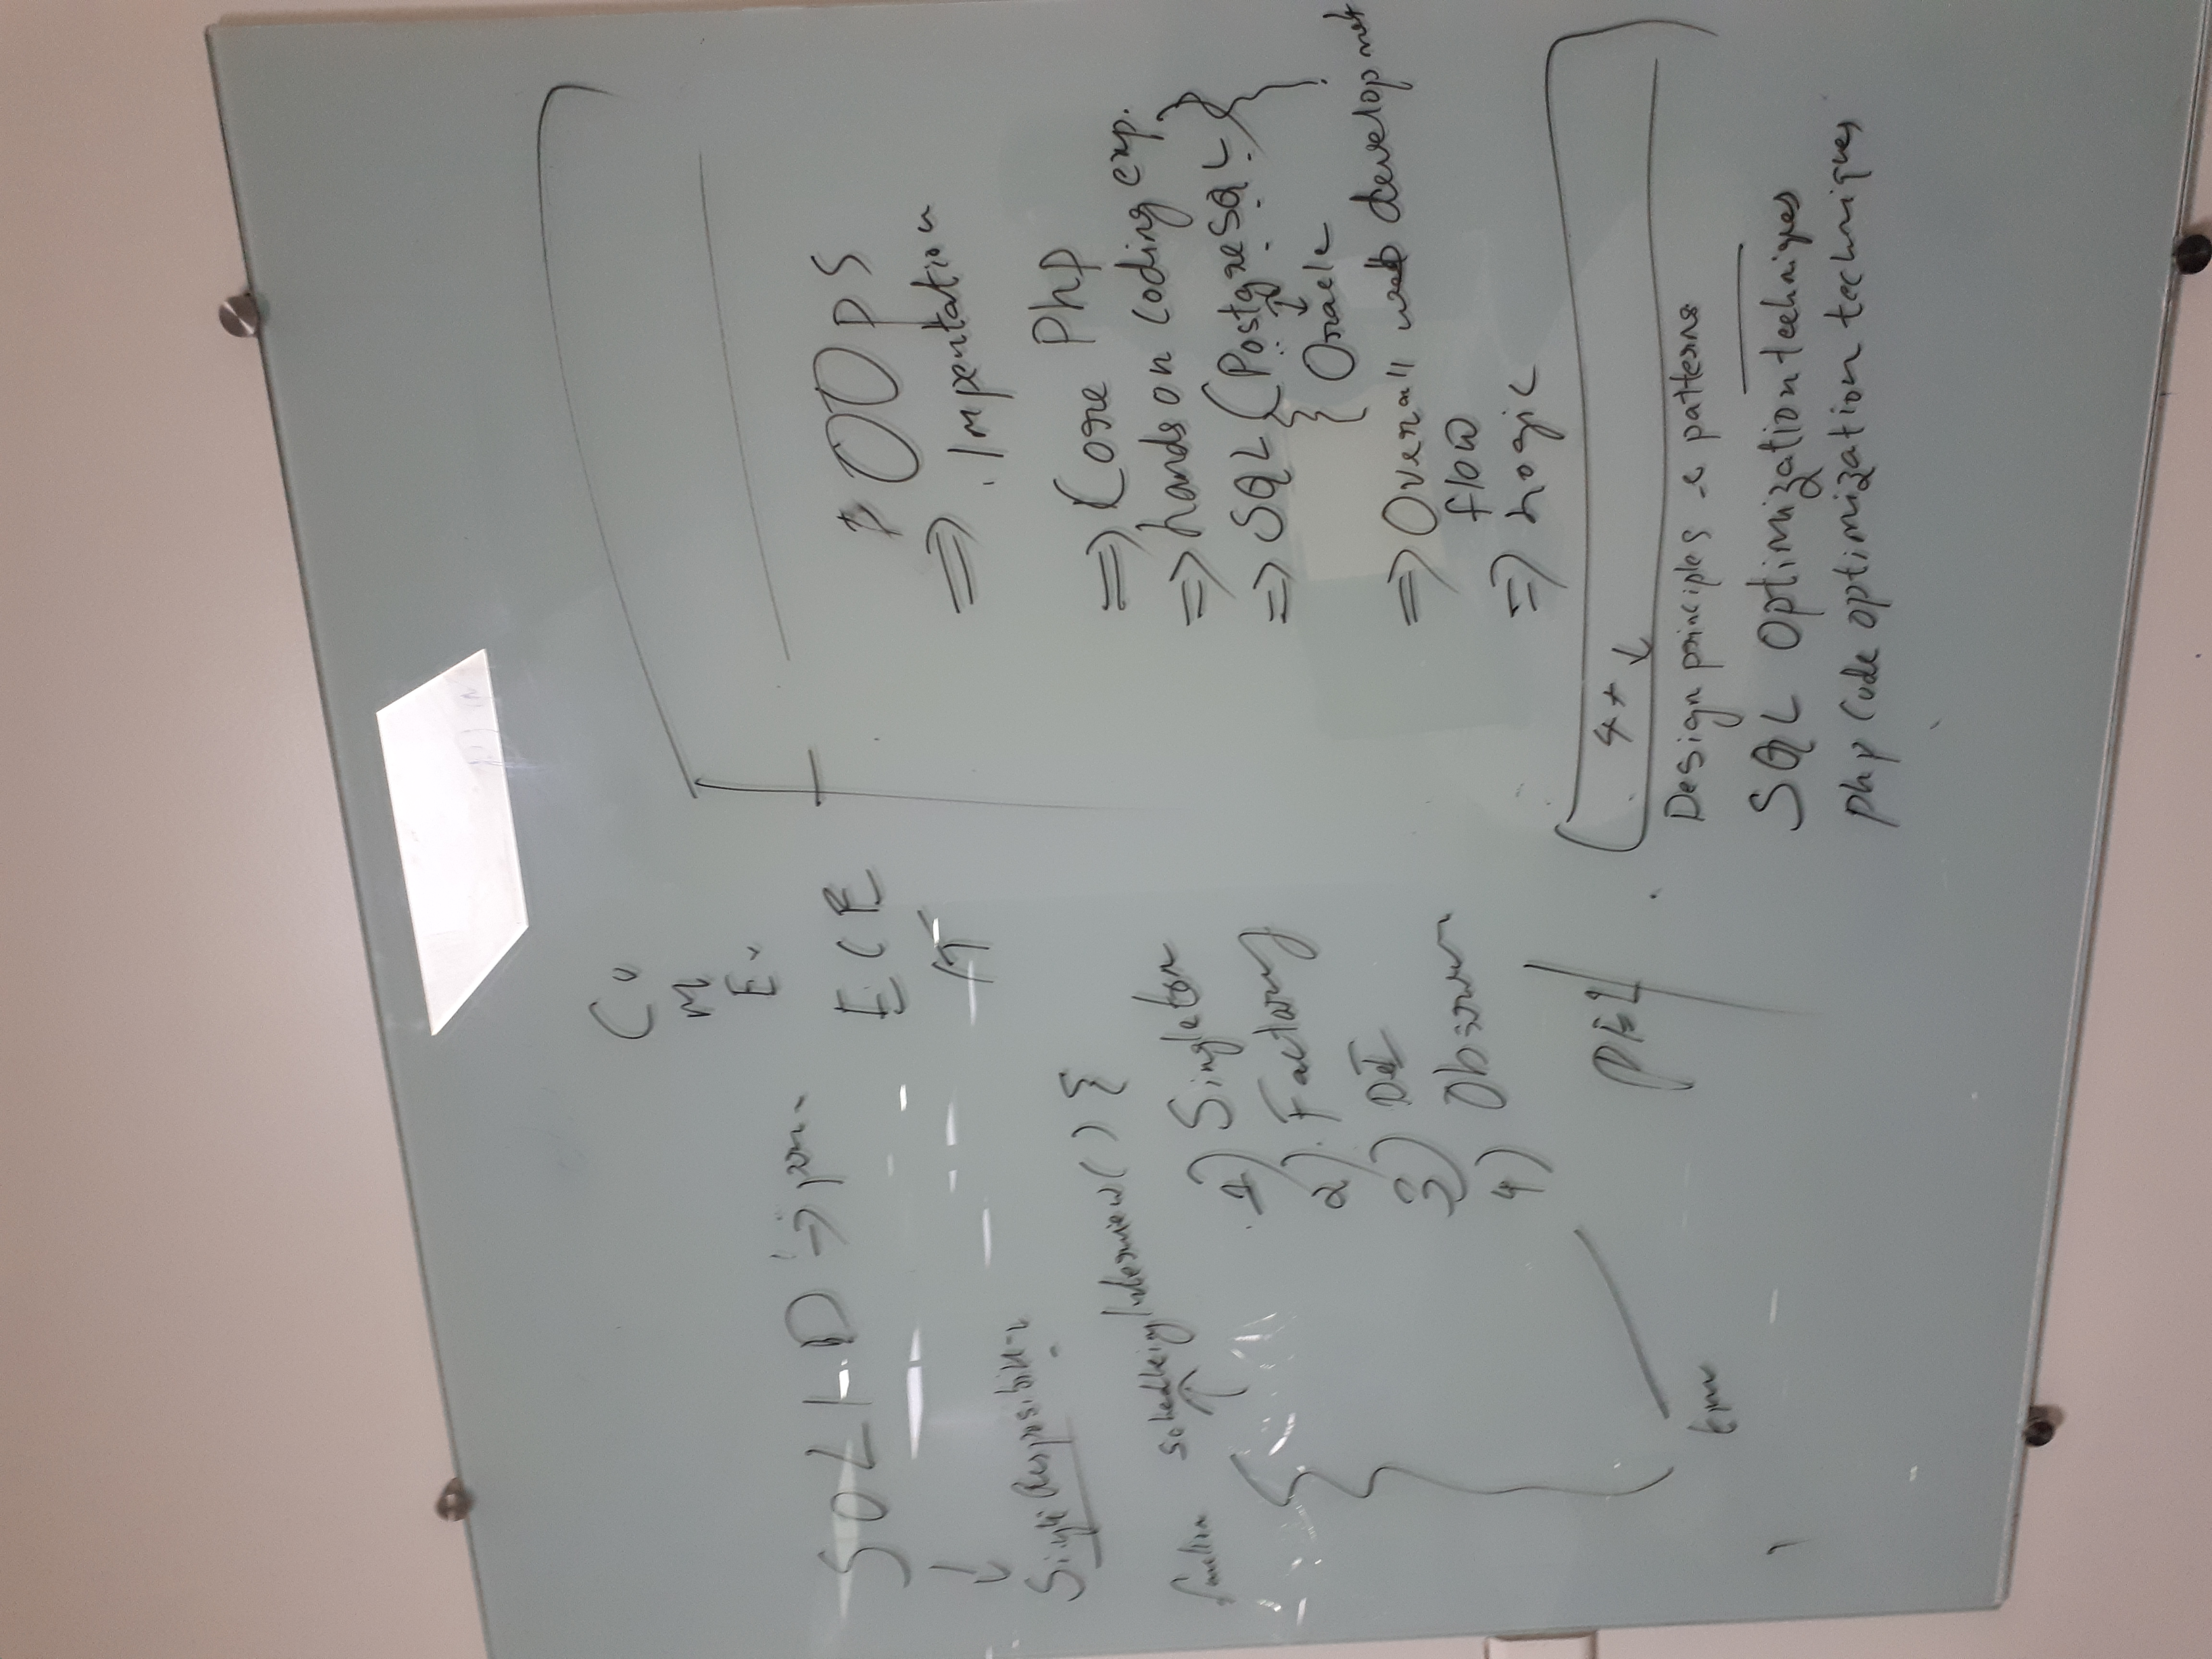 C
M
E
ECE
IT
SOLID =>
Single Responsibility
function schedleingInterview() {
1) Singleton
2) Factory
3) DI
4) Observer
OOps
=> . Impentation
=> Core Php
=> hands on coding exp.
=> SQL (PostgreSQL)
Oracle
=> Overall web development
flow
=> Logic
4+ ↓
Design principles & patterns
SQL Optimization techniques
php Code optimization techniques